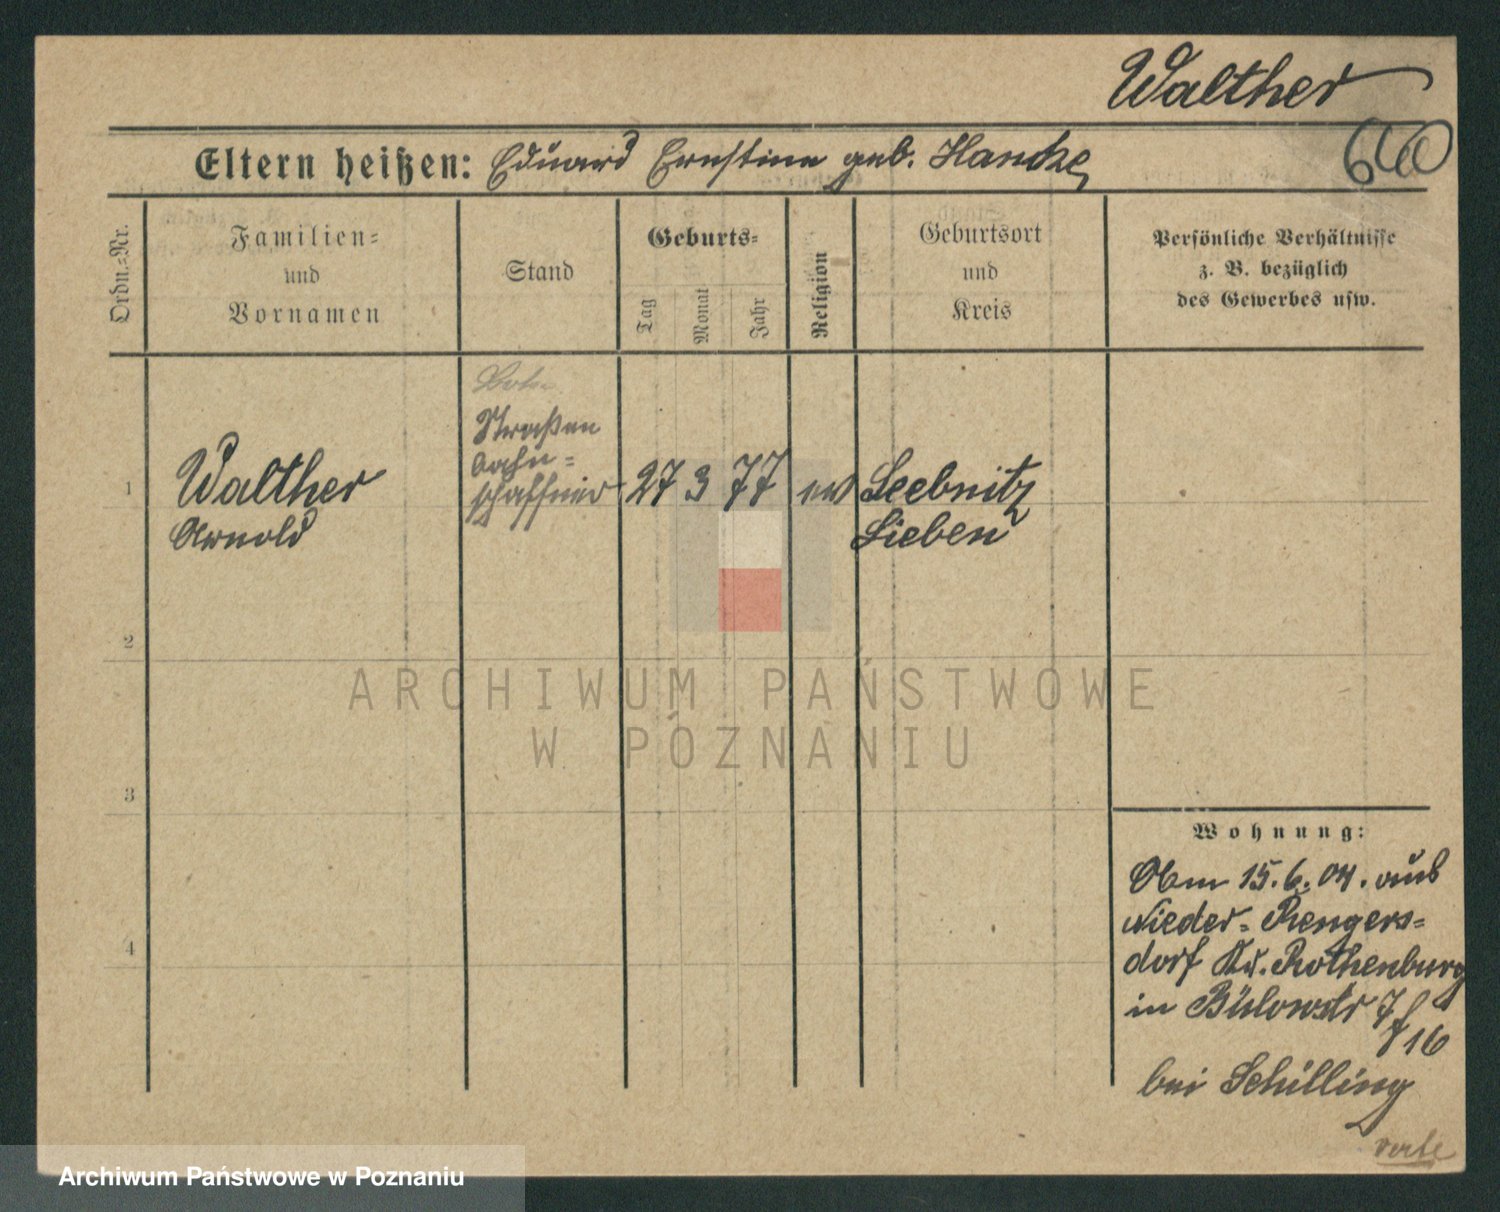 Walther
Eltern heißen: Eduard Ernstine geb. Hancke
660
Ordn.-Nr.
Familien-
und
Vornamen
Stand
Geburts-
Tag
Monat
Jahr
Religion
Geburtsort
und
Kreis
Persönliche Verhältnisse
z. B. bezüglich
des Gewerbes usw.
Straßen
bahn-
schaffner
1
Walther
27 3 77
ev
Seebnitz
Arnold
Lieben
2
ARCHIWUM PAŃSTWOWE
W POZNANIU
3
Wohnung:
Am 15.6.04. aus
Nieder-Rengers-
dorf Kr. Rothenburg
in Bülowstr 7
f 16
bei Schilling
4
verte
Archiwum Państwowe w Poznaniu